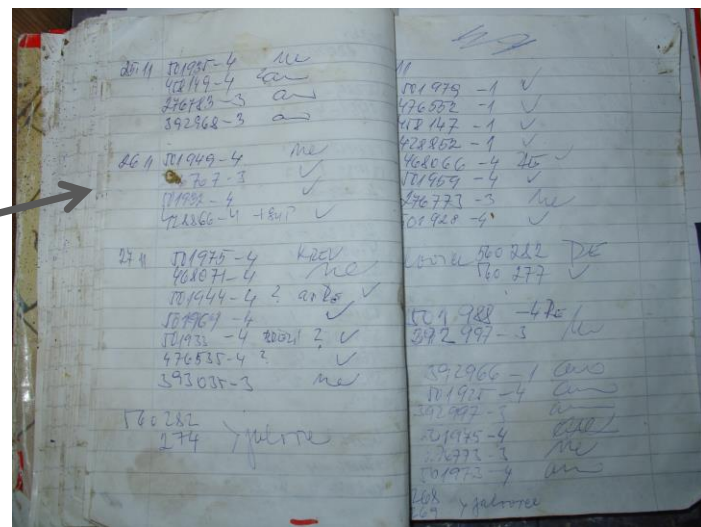 25.11 501935-4 Ne
458149-4 ano
276783-3 ano
392968-3 ano
26.11 501949-4 Ne
767-3 ✓
501992-4 ✓
428866-4 ✓
27.11 501975-4 KREV
468071-4 Ne
501944-4 ? ✓
501964-4 ✓
501933-4 ? ✓
476535-4 ? ✓
393035-3 Ne
560282
274 jalovice
11
501979-1 ✓
476552-1 ✓
458147-1 ✓
428852-1 ✓
468066-4 ZE ✓
501959-4 ✓
276773-3 Ne
501928-4 ✓
560282 DE
560277 ✓
501988-4
392997-3 Ne
392966-1 ano
501925-4 ano
392997-3 an
501975-4
276773-3 Ne
501973-4 ano
268
269 jalovice